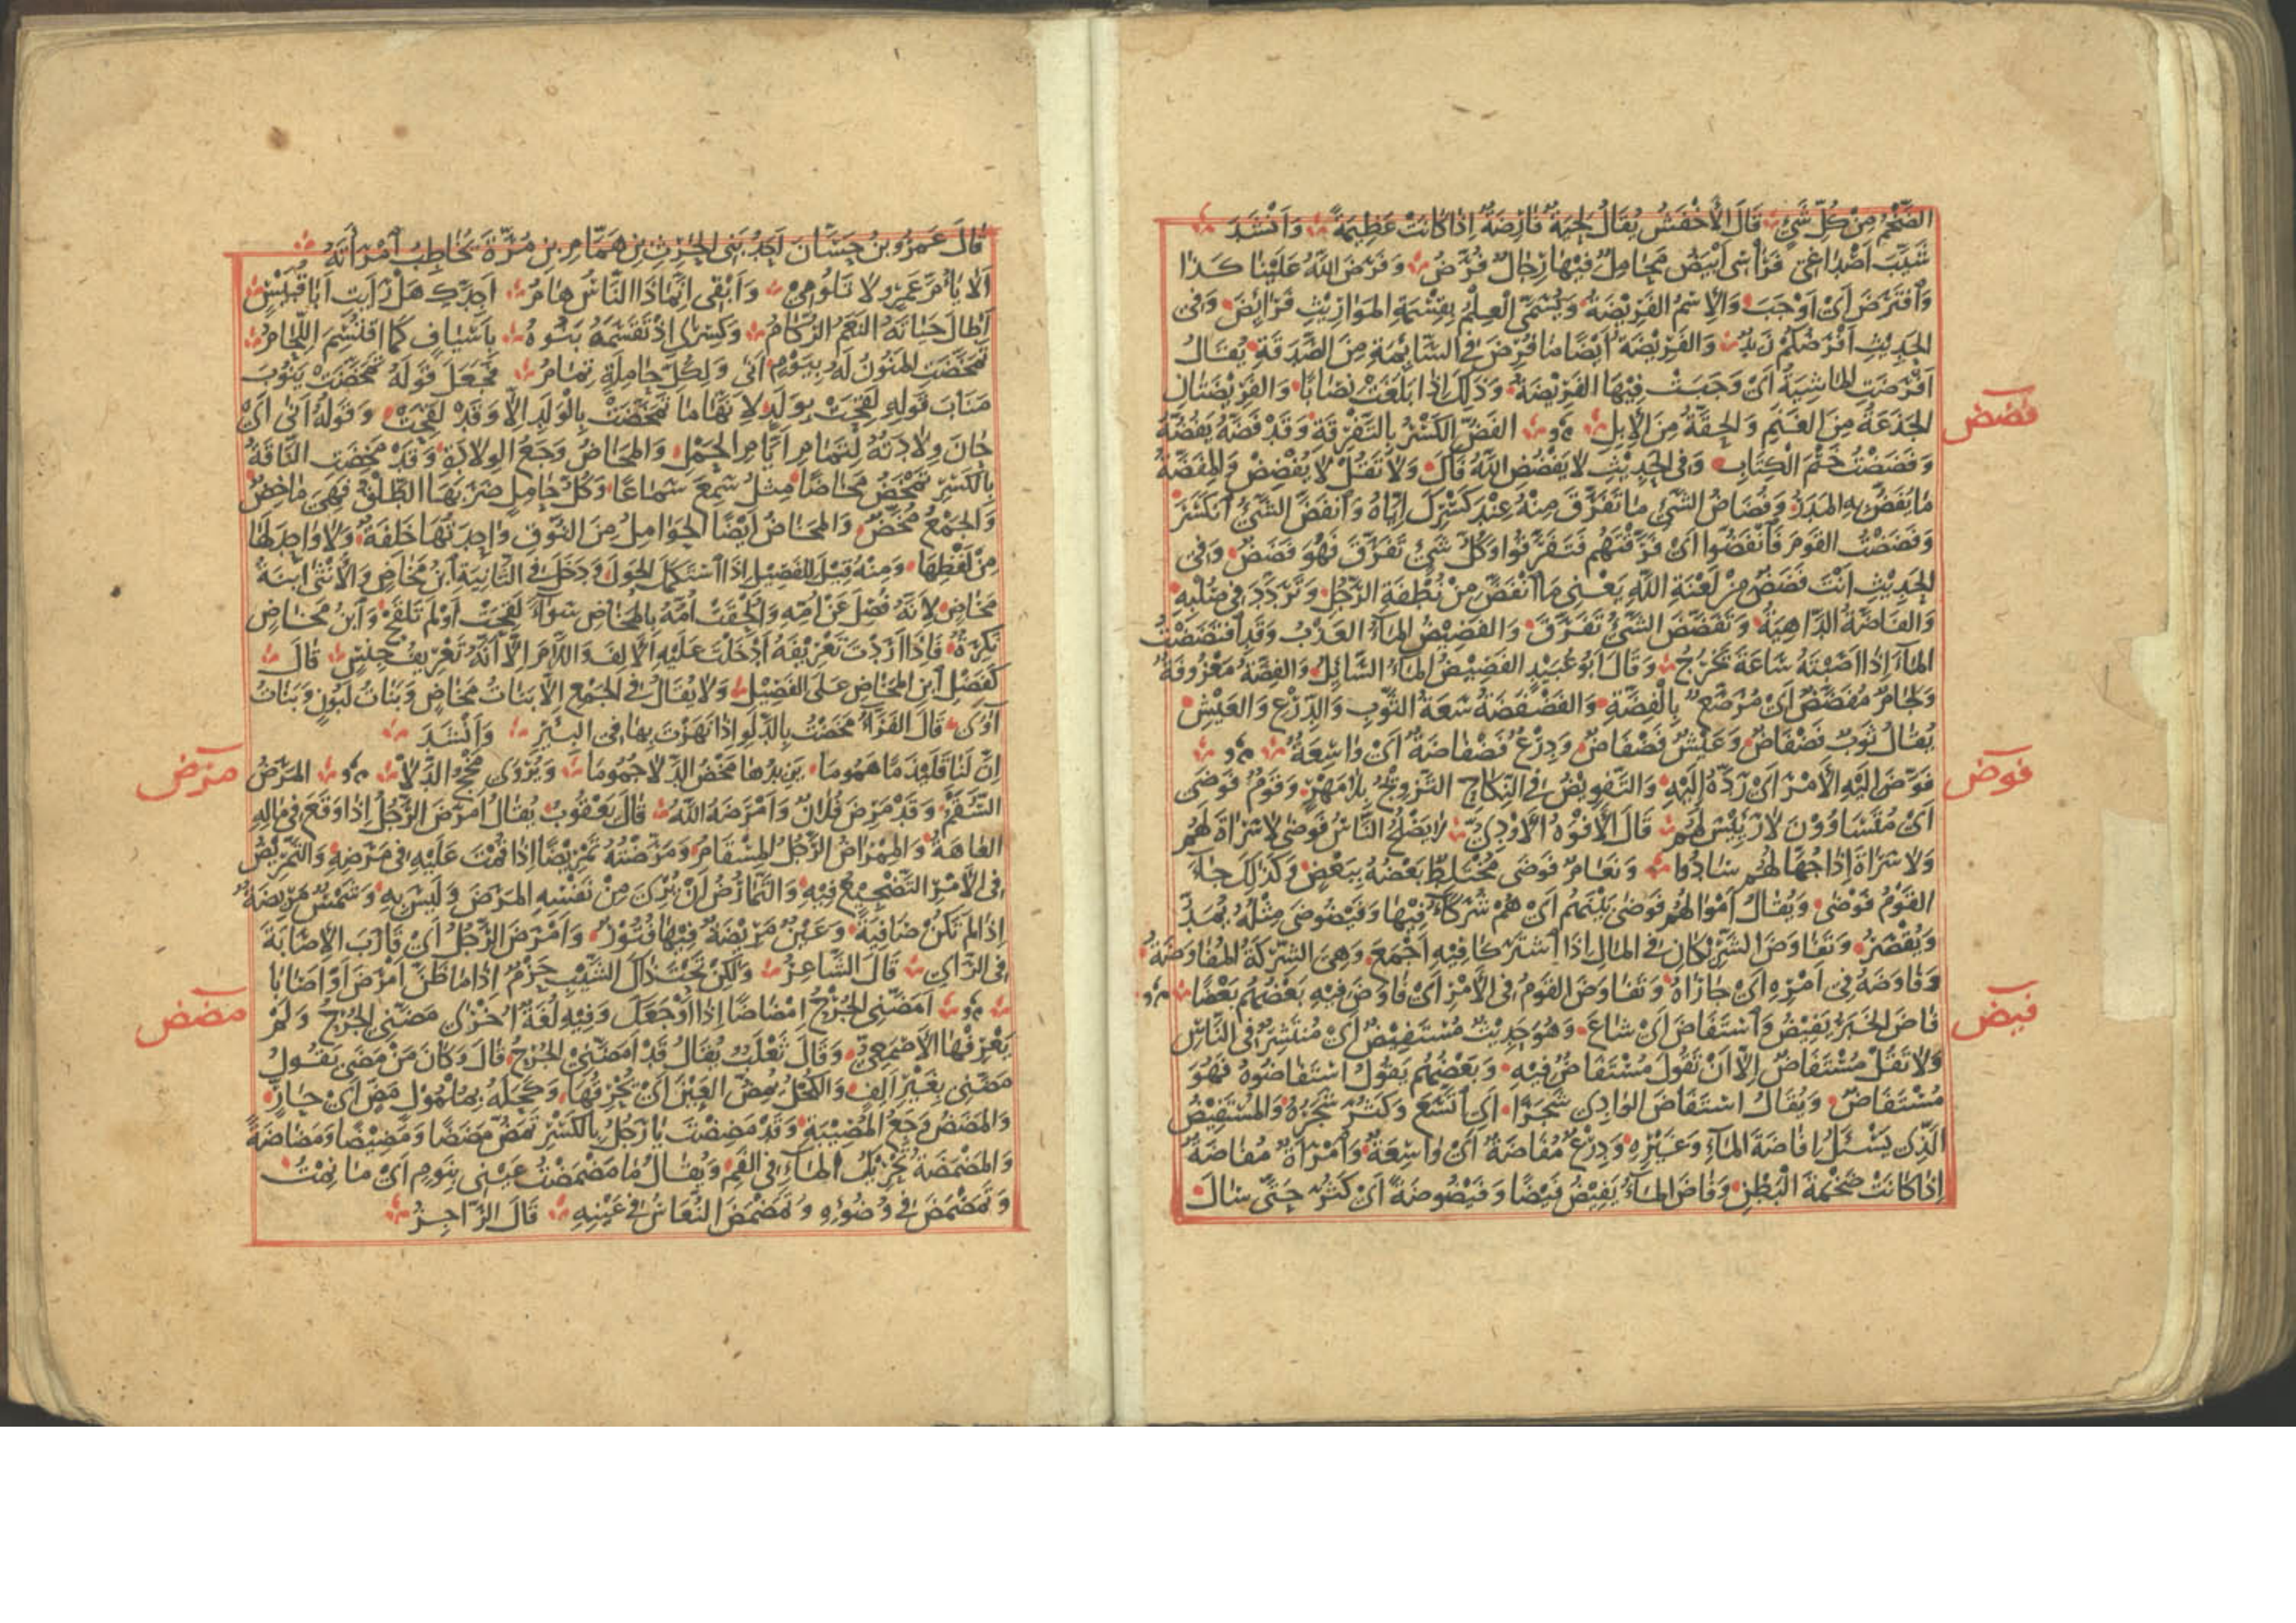 الضَّخْمُ مِنْ كُلِّ شَيْءٍ قَالَ الأَخْفَشُ يُقَالُ لِحْيَةٌ فَارِضَةٌ إِذَا كَانَتْ عَظِيمَةً وَأَنْشَدَ
شَيَّبَ أَصْدَاغِي فَرَأْسِي أَبْيَضُ مَحَامِلٌ فِيهَا رِجَالٌ فُرَّضُ وَفَرَضَ اللهُ عَلَيْنَا كَذَا
وَافْتَرَضَ أَيْ أَوْجَبَ وَالاِسْمُ الفَرِيضَةُ وَيُسَمَّى العِلْمُ بِقِسْمَةِ المَوَارِيثِ فَرَائِضَ وَفِي
الحَدِيثِ أَفْرَضُكُمْ زَيْدٌ وَالفَرِيضَةُ أَيْضًا مَا فُرِضَ فِي السَّائِمَةِ مِنَ الصَّدَقَةِ يُقَالُ
أَفْرَضَتِ المَاشِيَةُ أَيْ وَجَبَتْ فِيهَا الفَرِيضَةُ وَذَلِكَ إِذَا بَلَغَتْ نِصَابًا وَالفَرِيضَتَانِ
الجَذَعَةُ مِنَ الغَنَمِ وَالحِقَّةُ مِنَ الإِبِلِ الفَضُّ الكَسْرُ بِالتَّفْرِقَةِ وَقَدْ فَضَّهُ يَفُضُّهُ
فضض
وَفَضَضْتُ خَتْمَ الْكِتَابِ وَفِي الحَدِيثِ لا يَفْضُضِ اللهُ فَاكَ وَلا تَقُلْ لا يُفْضِضْ وَالمِفَضَّةُ
مَا يُفَضُّ بِهِ المَدَرُ وَفُضَاضُ الشَّيْءِ مَا تَفَرَّقَ مِنْهُ عِنْدَ كَسْرِكَ إِيَّاهُ وَانْفَضَّ الشَّيْءُ انْكَسَرَ
وَفَضَضْتُ القَوْمَ فَانْفَضُّوا أَيْ فَرَّقْتُهُمْ فَتَفَرَّقُوا وَكُلُّ شَيْءٍ تَفَرَّقَ فَهُوَ فَضَضٌ وَفِي
الحَدِيثِ أَنْتَ فَضَضٌ مِنْ لَعْنَةِ اللهِ يَعْنِي مَا انْفَضَّ مِنْ نُطْفَةِ الرَّجُلِ وَتَرَدَّدَ فِي صُلْبِهِ
وَالفَاضَّةُ الدَّاهِيَةُ وَتَفَضَّضَ الشَّيْءُ تَفَرَّقَ وَالفَضِيضُ المَاءُ العَذْبُ وَقَدِ افْتَضَضْتُ
المَاءَ إِذَا أَصَبْتَهُ سَاعَةَ تَخْرُجُ وَقَالَ أَبُو عُبَيْدٍ الفَضِيضُ المَاءُ السَّائِلُ وَالفِضَّةُ مَعْرُوفَةٌ
وَلِجَامٌ مُفَضَّضٌ أَيْ مُرَصَّعٌ بِالْفِضَّةِ وَالفَضْفَضَةُ سَعَةُ الثَّوْبِ وَالدِّرْعِ وَالعَيْشِ
يُقَالُ ثَوْبٌ فَضْفَاضٌ وَعَيْشٌ فَضْفَاضٌ وَدِرْعٌ فَضْفَاضَةٌ أَيْ وَاسِعَةٌ
فوض
فَوَّضَ إِلَيْهِ الأَمْرَ أَيْ رَدَّهُ إِلَيْهِ وَالتَّفْوِيضُ فِي النِّكَاحِ التَّزْوِيجُ بِلا مَهْرٍ وَقَوْمٌ فَوْضَى
أَيْ مُتَسَاوُونَ لا رَئِيسَ لَهُمْ قَالَ الأَفْوَهُ الأَوْدِيُّ لا يَصْلُحُ النَّاسُ فَوْضَى لا سَرَاةَ لَهُمْ
وَلا سَرَاةَ إِذَا جُهَّالُهُمْ سَادُوا وَنَعَامٌ فَوْضَى مُخْتَلِطٌ بَعْضُهُ بِبَعْضٍ وَكَذَلِكَ جَاءَ
القَوْمُ فَوْضَى وَيُقَالُ أَمْوَالُهُمْ فَوْضَى بَيْنَهُمْ أَيْ هُمْ شُرَكَاءُ فِيهَا وَفَيْضُوضَى مِثْلُهُ يُمَدُّ
وَيُقْصَرُ وَتَفَاوَضَ الشَّرِيكَانِ فِي المَالِ إِذَا اشْتَرَكَا فِيهِ أَجْمَعَ وَهِيَ الشِّرْكَةُ المُفَاوَضَةُ
وَفَاوَضَهُ فِي أَمْرِهِ أَيْ جَارَاهُ وَتَفَاوَضَ القَوْمُ فِي الأَمْرِ أَيْ فَاوَضَ فِيهِ بَعْضُهُمْ بَعْضًا
فيض
فَاضَ الخَبَرُ يَفِيضُ وَاسْتَفَاضَ أَيْ شَاعَ وَهُوَ حَدِيثٌ مُسْتَفِيضٌ أَيْ مُنْتَشِرٌ فِي النَّاسِ
وَلا تَقُلْ مُسْتَفَاضٌ إِلاَّ أَنْ تَقُولَ مُسْتَفَاضٌ فِيهِ وَبَعْضُهُمْ يَقُولُ اسْتَفَاضُوهُ فَهُوَ
مُسْتَفَاضٌ وَيُقَالُ اسْتَفَاضَ الوَادِي شَجَرًا أَيِ اتَّسَعَ وَكَثُرَ شَجَرُهُ وَالمُسْتَفِيضُ
الَّذِي يَسْئَلُ إِفَاضَةَ المَاءِ وَغَيْرِهِ وَدِرْعٌ مُفَاضَةٌ أَيْ وَاسِعَةٌ وَامْرَأَةٌ مُفَاضَةٌ
إِذَا كَانَتْ ضَخْمَةَ الْبَطْنِ وَفَاضَ المَاءُ يَفِيضُ فَيْضًا وَفَيْضُوضَةً أَيْ كَثُرَ حَتَّى سَالَ
قَالَ عَمْرُو بْنُ حَسَّانَ أَحَدُ بَنِي الحٰرِثِ بْنِ هَمَّامِ بْنِ مُرَّةَ يُخَاطِبُ امْرَأَتَهُ
أَلا يَا أُمَّ عَمْرٍو لا تَلُومِي وَأَبْقِي إِنَّمَا ذَا النَّاسُ هَامُ أَجِدَّكِ هَلْ رَأَيْتِ أَبَا قُبَيْسٍ
أَطَالَ حَيَاتَهُ النَّعَمُ الرُّكَامُ وَكِسْرَى إِذْ تَقَسَّمَهُ بَنُوهُ بِأَسْيَافٍ كَمَا اقْتُسِمَ اللِّحَامُ
تَمَخَّضَتِ المَنُونُ لَهُ بِيَوْمٍ أَنَى وَلِكُلِّ حَامِلَةٍ تِمَامُ فَجَعَلَ قَوْلَهُ تَمَخَّضَتْ يَنُوبُ
مَنَابَ قَوْلِهِ لَقِحَتْ بِوَلَدٍ لأَنَّهَا مَا تَمَخَّضَتْ بِالْوَلَدِ إِلاَّ وَقَدْ لَقِحَتْ وَقَوْلُهُ أَنَى أَيْ
حَانَ وِلادَتُهُ لِتَمَامِ أَيَّامِ الحَمْلِ وَالمَخَاضُ وَجَعُ الوِلادَةِ وَقَدْ مَخِضَتِ النَّاقَةُ
بِالْكَسْرِ تَمْخَضُ مَخَاضًا مِثْلُ سَمِعَ سَمَاعًا وَكُلُّ حَامِلٍ ضَرَبَهَا الطَّلْقُ فَهِيَ مَاخِضٌ
وَالجَمْعُ مُخَّضٌ وَالمَخَاضُ أَيْضًا الحَوَامِلُ مِنَ النُّوقِ وَاحِدَتُهَا خَلِفَةٌ وَلا وَاحِدَ لَهَا
مِنْ لَفْظِهَا وَمِنْهُ قِيلَ لِلْفَصِيلِ إِذَا اسْتَكْمَلَ الحَوْلَ وَدَخَلَ فِي الثَّانِيَةِ ابْنُ مَخَاضٍ وَالأُنْثَى ابْنَةُ
مَخَاضٍ لأَنَّهُ فُصِلَ عَنْ أُمِّهِ وَأُلْحِقَتْ أُمُّهُ بِالمَخَاضِ سَوَاءٌ لَقِحَتْ أَوْ لَمْ تَلْقَحْ وَابْنُ مَخَاضٍ
نَكِرَةٌ فَإِذَا أَرَدْتَ تَعْرِيفَهُ أَدْخَلْتَ عَلَيْهِ الأَلِفَ وَاللاَّمَ إِلاَّ أَنَّهُ تَعْرِيفُ جِنْسٍ قَالَ
كَفَضْلِ ابْنِ المَخَاضِ عَلَى الفَصِيلِ وَلا يُقَالُ فِي الجَمْعِ إِلاَّ بَنَاتُ مَخَاضٍ وَبَنَاتُ لَبُونٍ وَبَنَاتُ
آوَى قَالَ الفَرَّاءُ مَخَضْتُ بِالدَّلْوِ إِذَا نَهَزْتَ بِهَا فِي البِئْرِ وَأَنْشَدَ
مرض
إِنَّ لَنَا قَلَيْذَمًا هَمُومَا يَزِيدُهَا مَخْضُ الدِّلا جُمُومَا وَيُرْوَى مَخْجُ الدِّلا المَرَضُ
السَّقَمُ وَقَدْ مَرِضَ فُلانٌ وَأَمْرَضَهُ اللهُ قَالَ يَعْقُوبُ يُقَالُ أَمْرَضَ الرَّجُلُ إِذَا وَقَعَ فِي مَالِهِ
العَاهَةُ وَالمِمْرَاضُ الرَّجُلُ المِسْقَامُ وَمَرَّضْتُهُ تَمْرِيضًا إِذَا قُمْتَ عَلَيْهِ فِي مَرَضِهِ وَالتَّمْرِيضُ
فِي الأَمْرِ التَّضْجِيعُ فِيهِ وَالتَّمَارُضُ أَنْ يُرِيَ مِنْ نَفْسِهِ المَرَضَ وَلَيْسَ بِهِ وَشَمْسٌ مَرِيضَةٌ
إِذَا لَمْ تَكُنْ صَافِيَةً وَعَيْنٌ مَرِيضَةٌ فِيهَا فُتُورٌ وَأَمْرَضَ الرَّجُلُ أَيْ قَارَبَ الإِصَابَةَ
فِي الرَّأْيِ قَالَ الشَّاعِرُ وَلَكِنْ تَحْتَ ذَاكَ الشَّيْبِ حَزْمٌ إِذَا مَا ظَنَّ أَمْرَضَ أَوْ أَصَابَا
مضض
أَمَضَّنِي الجُرْحُ إِمْضَاضًا إِذَا أَوْجَعَكَ وَفِيهِ لُغَةٌ أُخْرَى مَضَّنِي الجُرْحُ وَلَمْ
يَعْرِفْهَا الأَصْمَعِيُّ وَقَالَ ثَعْلَبٌ يُقَالُ قَدْ أَمَضَّنِي الجُرْحُ قَالَ وَكَانَ مَنْ مَضَى يَقُولُ
مَضَّنِي بِغَيْرِ أَلِفٍ وَالكُحْلُ يُمِضُّ العَيْنَ أَيْ يُحْرِقُهَا وَكَحَلَهُ بِمُلْمُولٍ مَضٍّ أَيْ حَارٍّ
وَالمَضَضُ وَجَعُ المُصِيبَةِ وَقَدْ مَضِضْتَ يَا رَجُلُ بِالكَسْرِ تَمَضُّ مَضَضًا وَمَضِيضًا وَمَضَاضَةً
وَالمَضْمَضَةُ تَحْرِيكُ المَاءِ فِي الفَمِ وَيُقَالُ مَا مَضْمَضْتُ عَيْنِي بِنَوْمٍ أَيْ مَا نِمْتُ
وَتَمَضْمَضَ فِي وُضُوئِهِ وَتَمَضْمَضَ النُّعَاسُ فِي عَيْنِهِ قَالَ الرَّاجِزُ